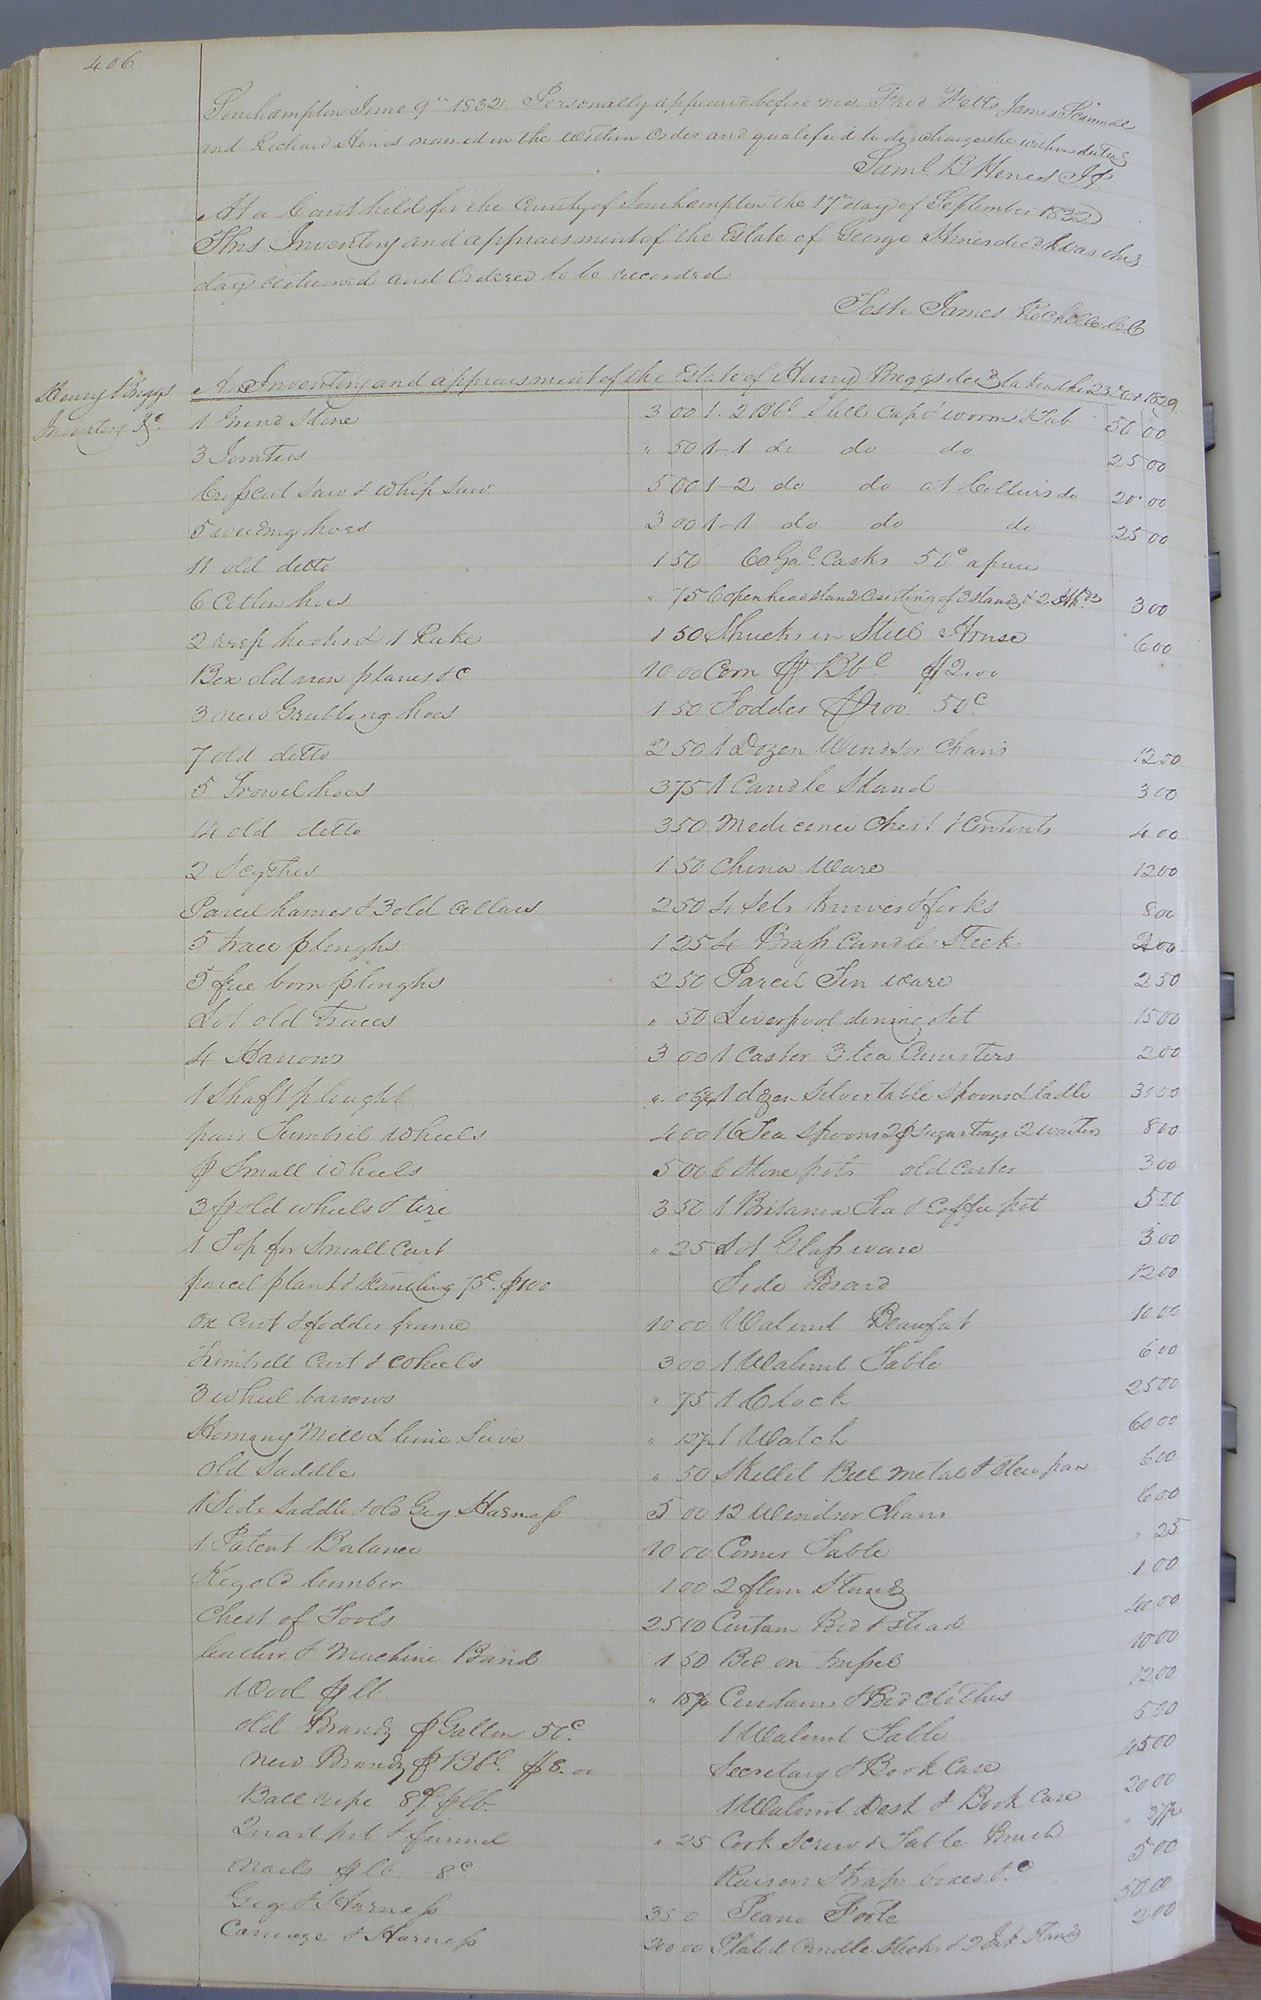 406
Southampton June 9th 1832. Personally appeared before me Fred Fetts James
and Richard named in the within Order and qualified to discharge the within duties
Saml B Hines JP
At a Court held for the County of Southampton the 17th day of September 1832
This Inventory and appraisment of the Estate of George Hines decd was this
day returned and Ordered to be recorded
Teste James Rochelle CC
Henry Briggs
Inventory &c
An Inventory and appraisment of the Estate of Henry Briggs decd taken the 23rd 1829.
1 Grind Stone 3 00 1. 2 Bbl Still Cap & worm & Tub 30 00
3 Jointers " 50 1–1 do do do 25 00
Crosscut saw & whip saw 5 00 1–2 do do at do 20 00
5 weeding hoes 3 00 1–1 do do do 25 00
11 old ditto 1 50 60 Gal. Casks 50c apiece
6 hoes " 75 6 open head stands Consisting of 3 Stands & 2 3 00
2 reap hooks & 1 Rake 1 50 Shucks in Still House 6 00
Box old iron planes &c 10 00 Corn ⅌ Bbl $2.00
3 new Grubbing hoes 1 50 Fodder ⅌ 100 50c
7 old ditto 2 50 1 Dozen Windsor Chairs 12 50
5 Trowel hoes 3 75 1 Candle Stand 3 00
14 old ditto 3 50 Medicine Chest & Contents 4 00
2 Scythes 1 50 China Ware 12 00
Parcel hames & 3 old Collars 2 50 4 Sets knives & forks 8 00
5 trace ploughs 1 25 4 Brass Candle Sticks 2 00
5 free born ploughs 2 50 Parcel Tin ware 2 50
Lot old Traces " 50 Liverpool dining Set 15 00
4 Harrows 3 00 1 Caster 3 tea Canisters 2 00
1 Shaft plought " 06¼ 1 dozen Silver table Spoons & ladle 30 00
pair Tumbril wheels 4 00 16 Tea Spoons 2 p Sugar tongs 2 waiters 8 00
p Small Wheels 5 00 6 Stone pots old Caster 3 00
3 p old wheels & tire 3 50 1 Britania Tea & Coffee pot 5 00
1 Top for Small Cart " 25 Lot Glass ware 3 00
parcel plank & Scantling 75c ⅌ 100 Side Board 12 00
Ox Cart & fodder frame 10 00 Walnut Beaufat 10 00
Tumbrell Cart & Wheels 3 00 1 Walnut Table 6 00
3 wheel barrows " 75 1 Clock 25 00
Homany Mill & lime Sieve " 12½ 1 Watch 60 00
Old Saddle " 50 Skellet Bell Metal & Stew pan 6 00
1 Side Saddle & old Gig Harness 5 00 12 Windsor Chairs 6 00
1 Patent Balance 10 00 Corner Table " 25
Keg old lumber 1 00 2 flour Stands 1 00
Chest of Tools 25 00 Curtain Bed & stead 40 00
leather & Machine Band 1 50 Bed on Trussel 10 00
Wool ⅌ lb " 18¾ Curtains & Bed clothes 12 00
old Brandy ⅌ Gallon 50c. 1 Walnut Table 5 00
New Brandy ⅌ Bbl. $8.00 Secretary & Book Case 45 00
Bale rope 8c ⅌ lb. 1 Walnut Desk & Book Case 20 00
Quart pot & funnel " 25 Cork Screw & Table Brush " 37½
Nails ⅌ lb 8c Raison Straps boxes &c 5 00
Gig & Harness 35 0 Piano Forte 50 00
Carriage & Harness 200 00 Plated Candle Sticks & 2 Ink Stands 2 00